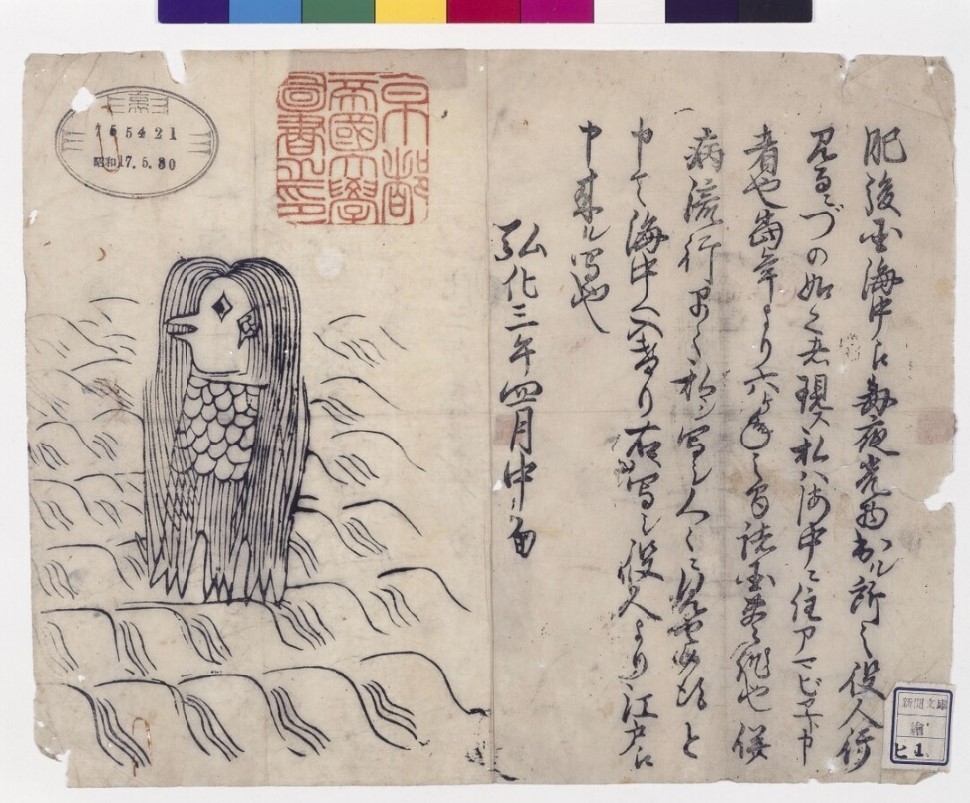 肥後国海中江毎夜光物出ル所之役人行
見るニづの如之者現ス私ハ海中ニ住アマビヱト申
者也当年より六ヶ年之間諸国豊作也併
病流行早々私シ写シ人々ニ見せ候得と
申て海中へ入けり右写シ役人より江戸江
申来ル写也
弘化三年四月中旬
京都
帝國大學
圖書之印
155421
昭和17.5.30
新聞文庫
繪
ヒ 1